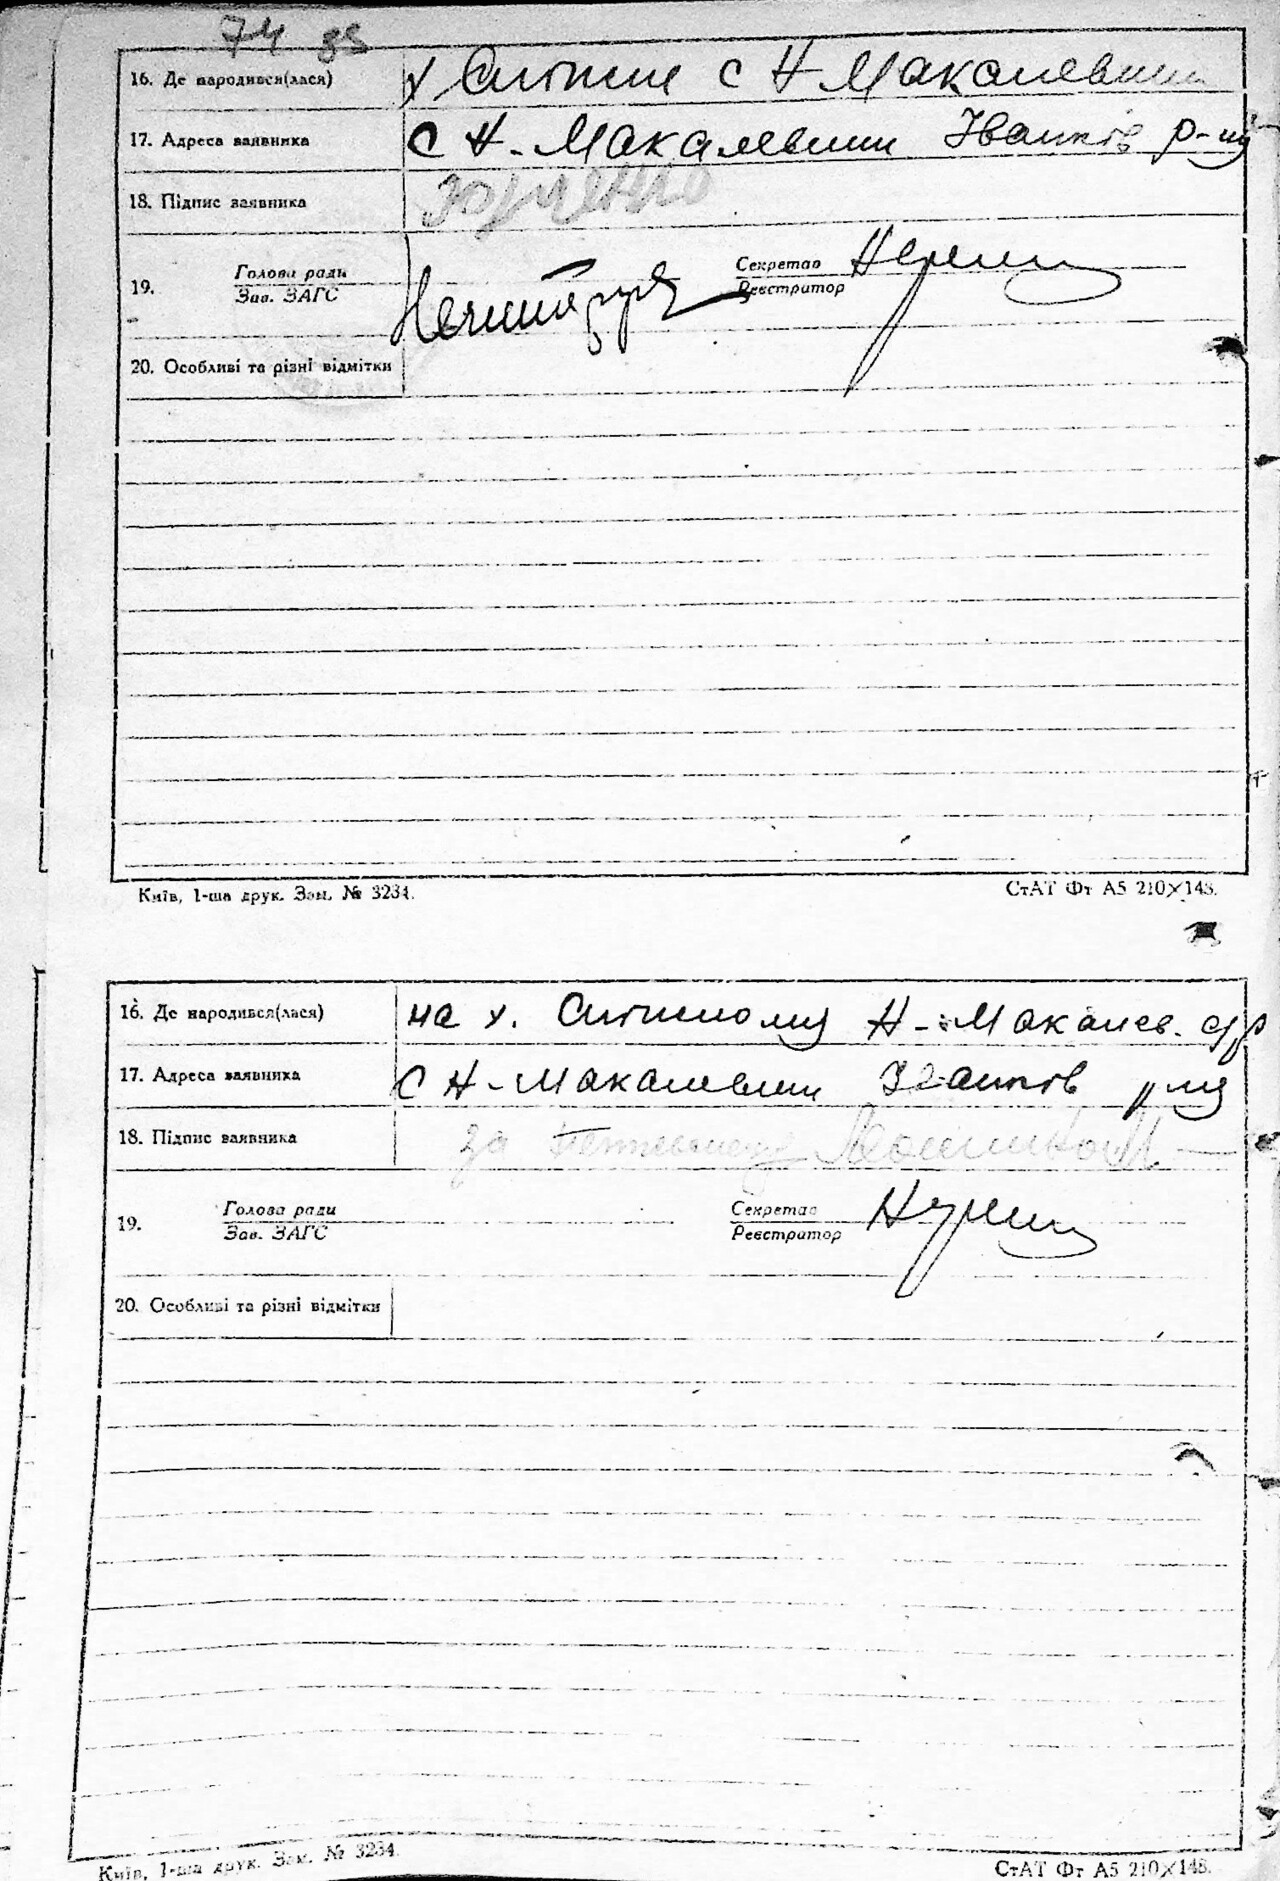 74 85
16. Де народився(лася) х Ситне с Н Макалевичи
17. Адреса заявника с Н-Макалевичи Іванків р-ну
18. Підпис заявника Юрченко
19. Голова ради Секретар
Зав. ЗАГС Реєстратор
20. Особливі та різні відмітки
Київ, 1-ша друк. Зам. № 3234. СтАТ Фт А5 210×148.
16. Де народився(лася) на х. Ситному Н-Макалев. с/р
17. Адреса заявника с Н-Макалевичи Іванків р-ну
18. Підпис заявника за
19. Голова ради Секретар
Зав. ЗАГС Реєстратор
20. Особливі та різні відмітки
Київ, 1-ша друк. Зам. № 3234 СтАТ Фт А5 210×148.